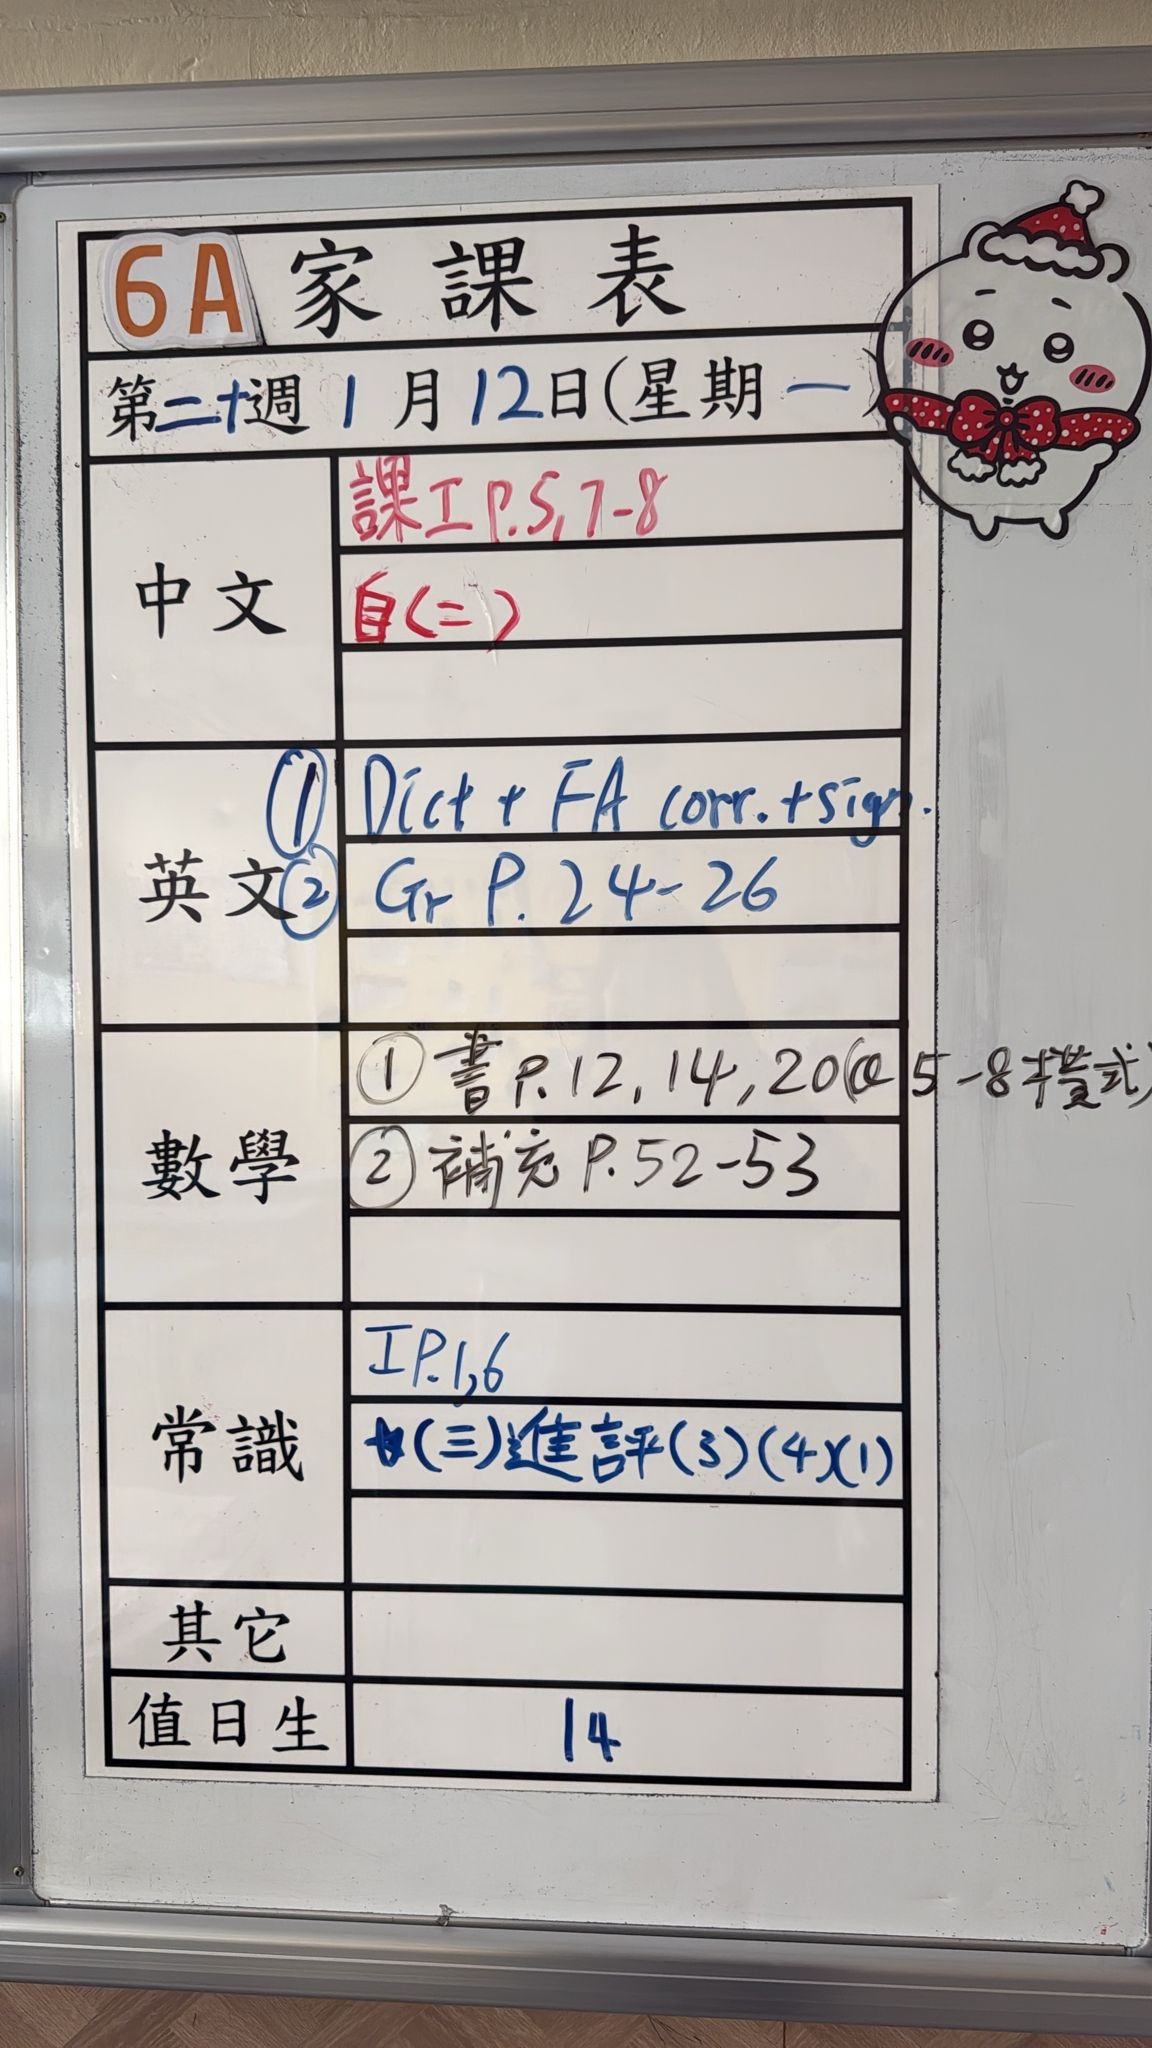 6A 家課表
第二十週 1月12日(星期一)
中文
課工 P.5, 7-8
自(二)
英文
① Dict + FA corr. + sign.
② Gr P. 24-26
數學
① 書 P. 12, 14, 20(Q5-8橫式)
② 補充 P. 52-53
常識
工P.1,6
(三)進評(3)(4)(1)
其它
值日生
14